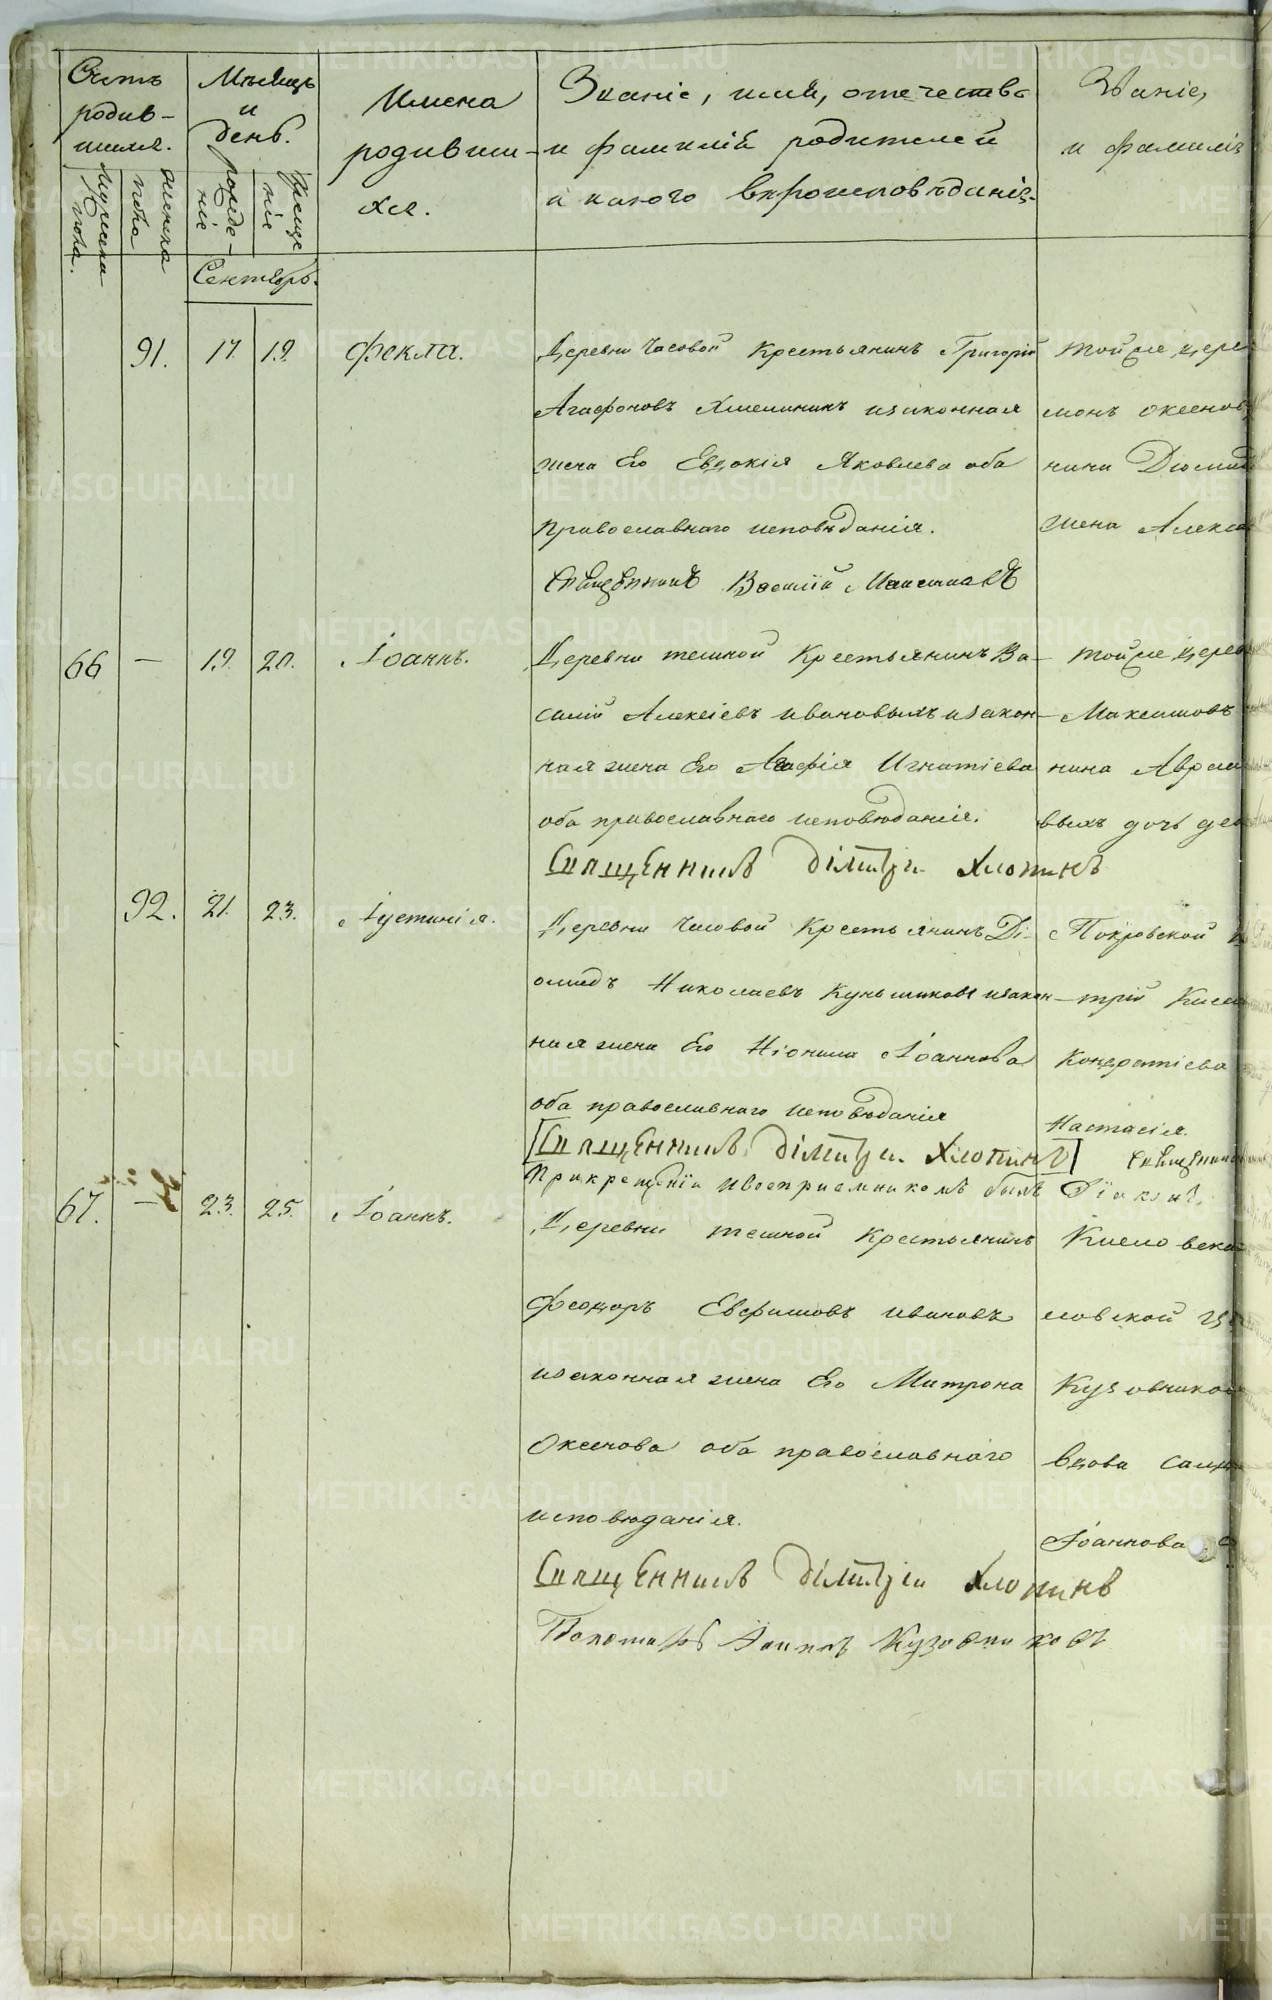 Счетъ родив-
шихся.
Мужеска
пола.
женска
пола
Мѣсяцъ
и
день.
рожде-
ніе
креще
ніе
Сентябрь.
Имена
родивши-
хся.
Званіе, имя, отечество
и фамилія родителей
и какого вѣроисповѣданія.
Званіе,
и фамилія
91. 17. 19. Фекла.
Деревни Часовой Крестьянинъ Григорій
Агафоновъ Хмелининъ изаконная
жена Его Евдокія Яковлева оба
православнаго исповѣданія.
Священникъ Василій
тойже дере
монъ оксенов
нина Діомид
жена Алекса
66 — 19. 20. Іоаннъ.
Деревни темной Крестьянинъ Ва-
силій Алексіевъ ивановыхъ изакон-
ная жена Его Агафія Игнатіева
оба православнаго исповѣданія.
Священникъ Дімітрій Хлопинъ
тойже дерев
Максимовъ
нина Аврам
выхъ дочь де
92. 21. 23. Іустинія.
Деревни Часовой Крестьянинъ Ді-
омидъ Николаевъ изакон-
ная жена Его Ніонила Іоаннова
оба православнаго исповѣданія
Священникъ Дімітрій Хлопинъ
Покровской
трій Кисел
Кондратіева
Настасія.
Священник
При крещеніи ивоспріемникомъ былъ Діаконъ
67. — 23. 25. Іоаннъ.
Деревни темной Крестьянинъ
Феодоръ Евфимовъ ивановъ
изаконная жена Его Матрона
Оксенова оба православнаго
исповѣданія.
Священникъ Дімітрій Хлопинъ
Пономарь Іоаннъ Кузовниковъ
Кисловска
ловской
Кузовников
вдова
Іоаннова
METRIKI.GASO-URAL.RU